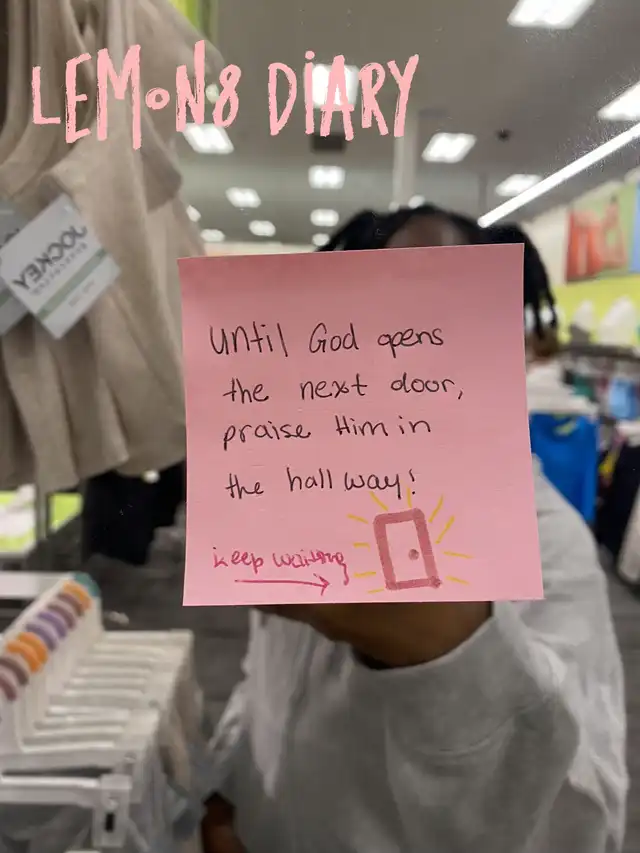 LEMON8 DIARY
JOCKEY
until God opens
the next door,
praise Him in
the hallway!
keep waiting